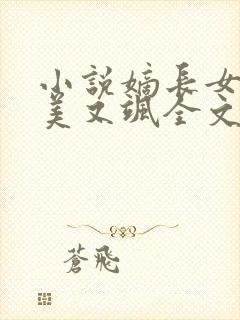 小説嫡長女
美又颯全文
蒼飛